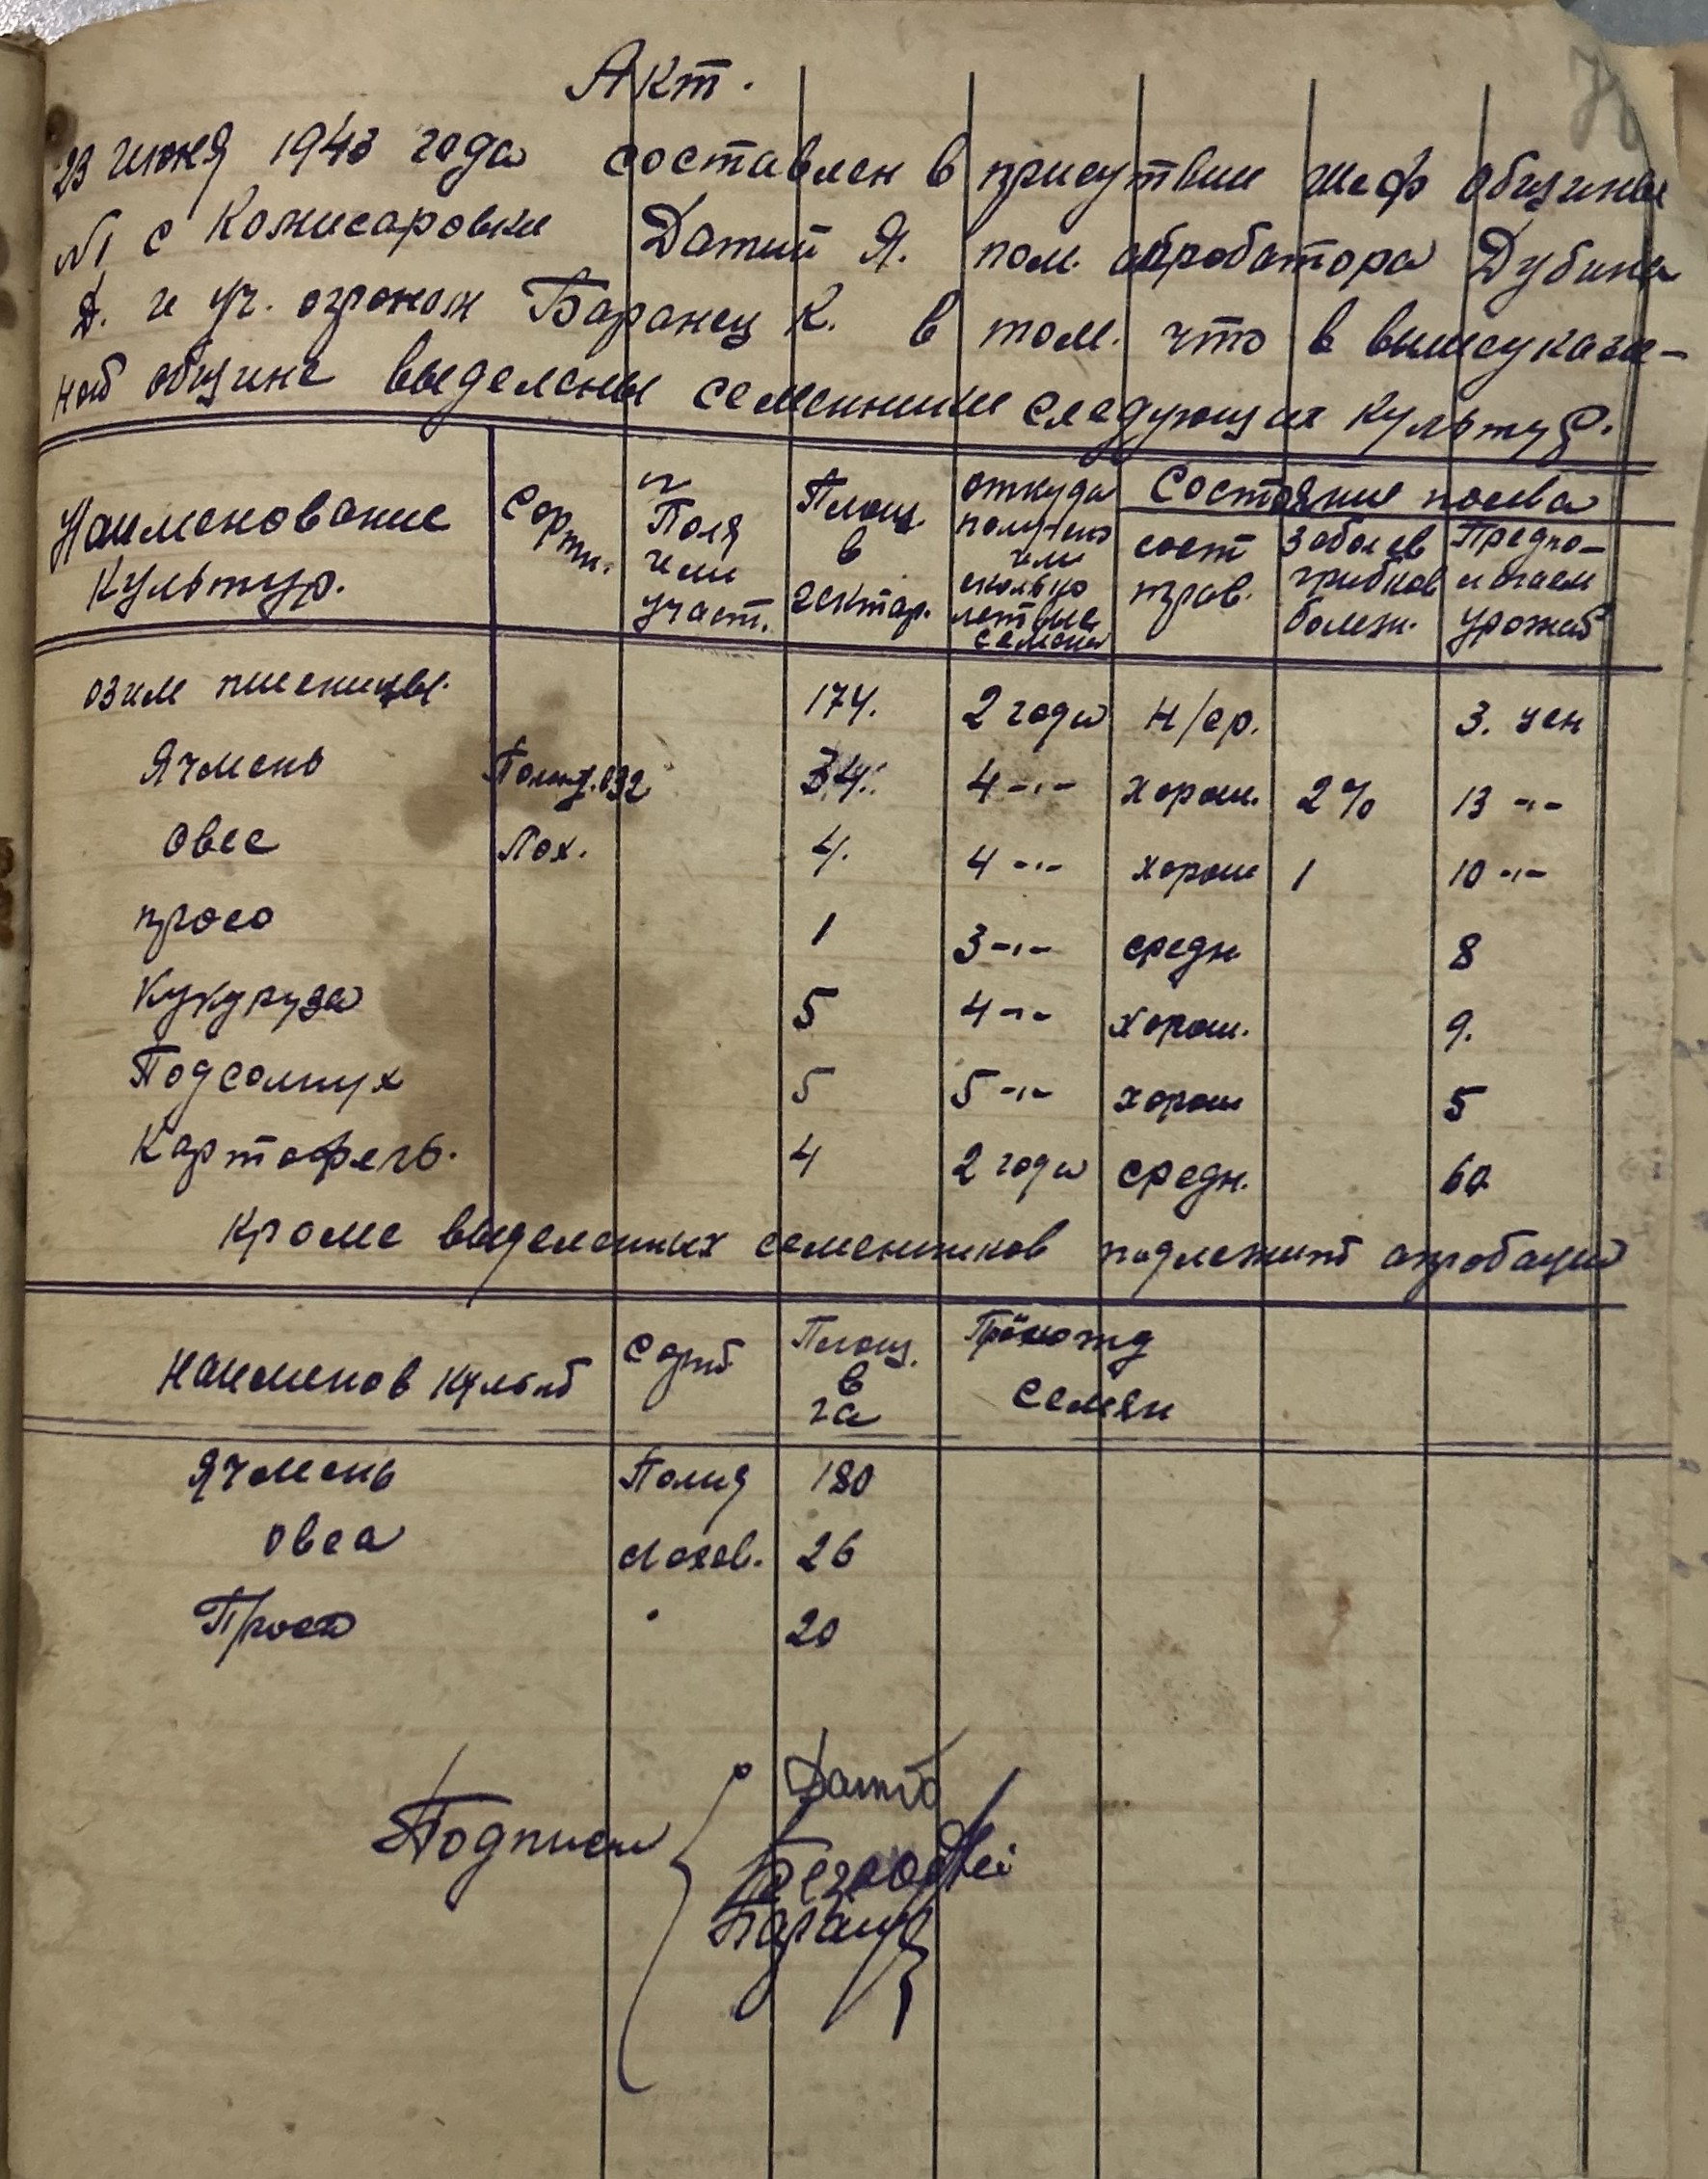 Акт.
23 июня 1943 года составлен в присутствии шеф общины
№1 с Комисаровки Датий Я. пом. апробатора Дубина
Д. и уч. агроном Баранец К. в том. что в вышеуказа-
ной общине выделены семенники следующих культур.
Наименование Культур.
Сорт.
№ Поля или участ.
Площ. в гектар.
откуда получено или сколько летные семена
Состояние посева
сост прав.
Заболев грибков болезн.
Предпо- лагаем урожай
озим пшеницы. 174. 2 года н/ср. 3. цен
Ячмень 032 34. 4 -"- хорош. 2% 13 -"-
Овес Лох. 4. 4 -"- хорош 1 10 -"-
просо 1 3 -"- средн 8
Кукуруза 5 4 -"- хорош. 9.
Подсолнух 5 5 -"- хорош 5
Картофель. 4 2 года средн. 60
Кроме выделенных семенников подлежит апробации
Наименов культ
Сорт
Площ. в га
семян
Ячмень Палид 180
Овса Лохов. 26
Просо " 20
Подписи
Датий
Баранец